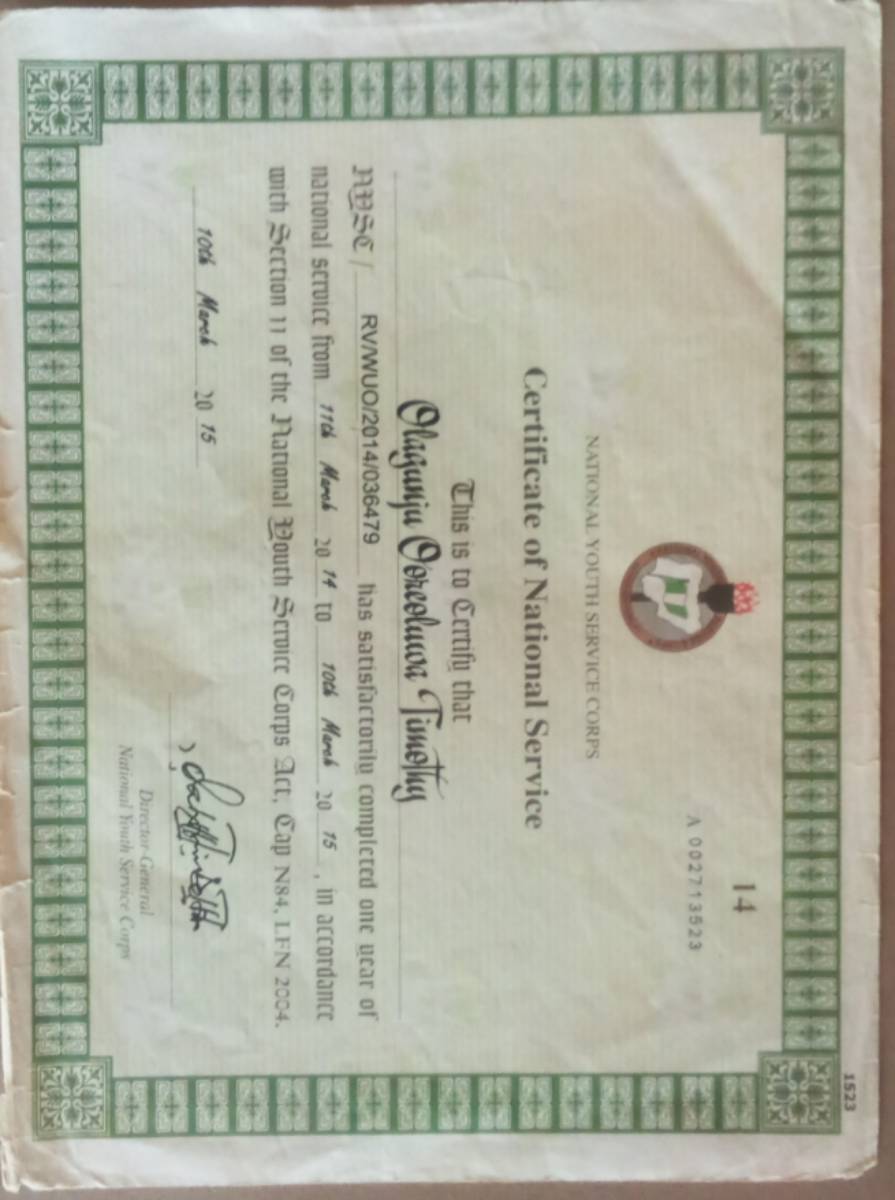 1523
14
A 002713523
NATIONAL YOUTH SERVICE CORPS
Certificate of National Service
This is to Certify that
Olagunju Ooreoluwa Timothy
NYSC / RV/WUO/2014/036479 has satisfactorily completed one year of
national service from 11th March 20 14 to 10th March 20 15, in accordance
with Section 11 of the National Youth Service Corps Act, Cap N84, LFN 2004.
10th March 20 15
Director-General
National Youth Service Corps